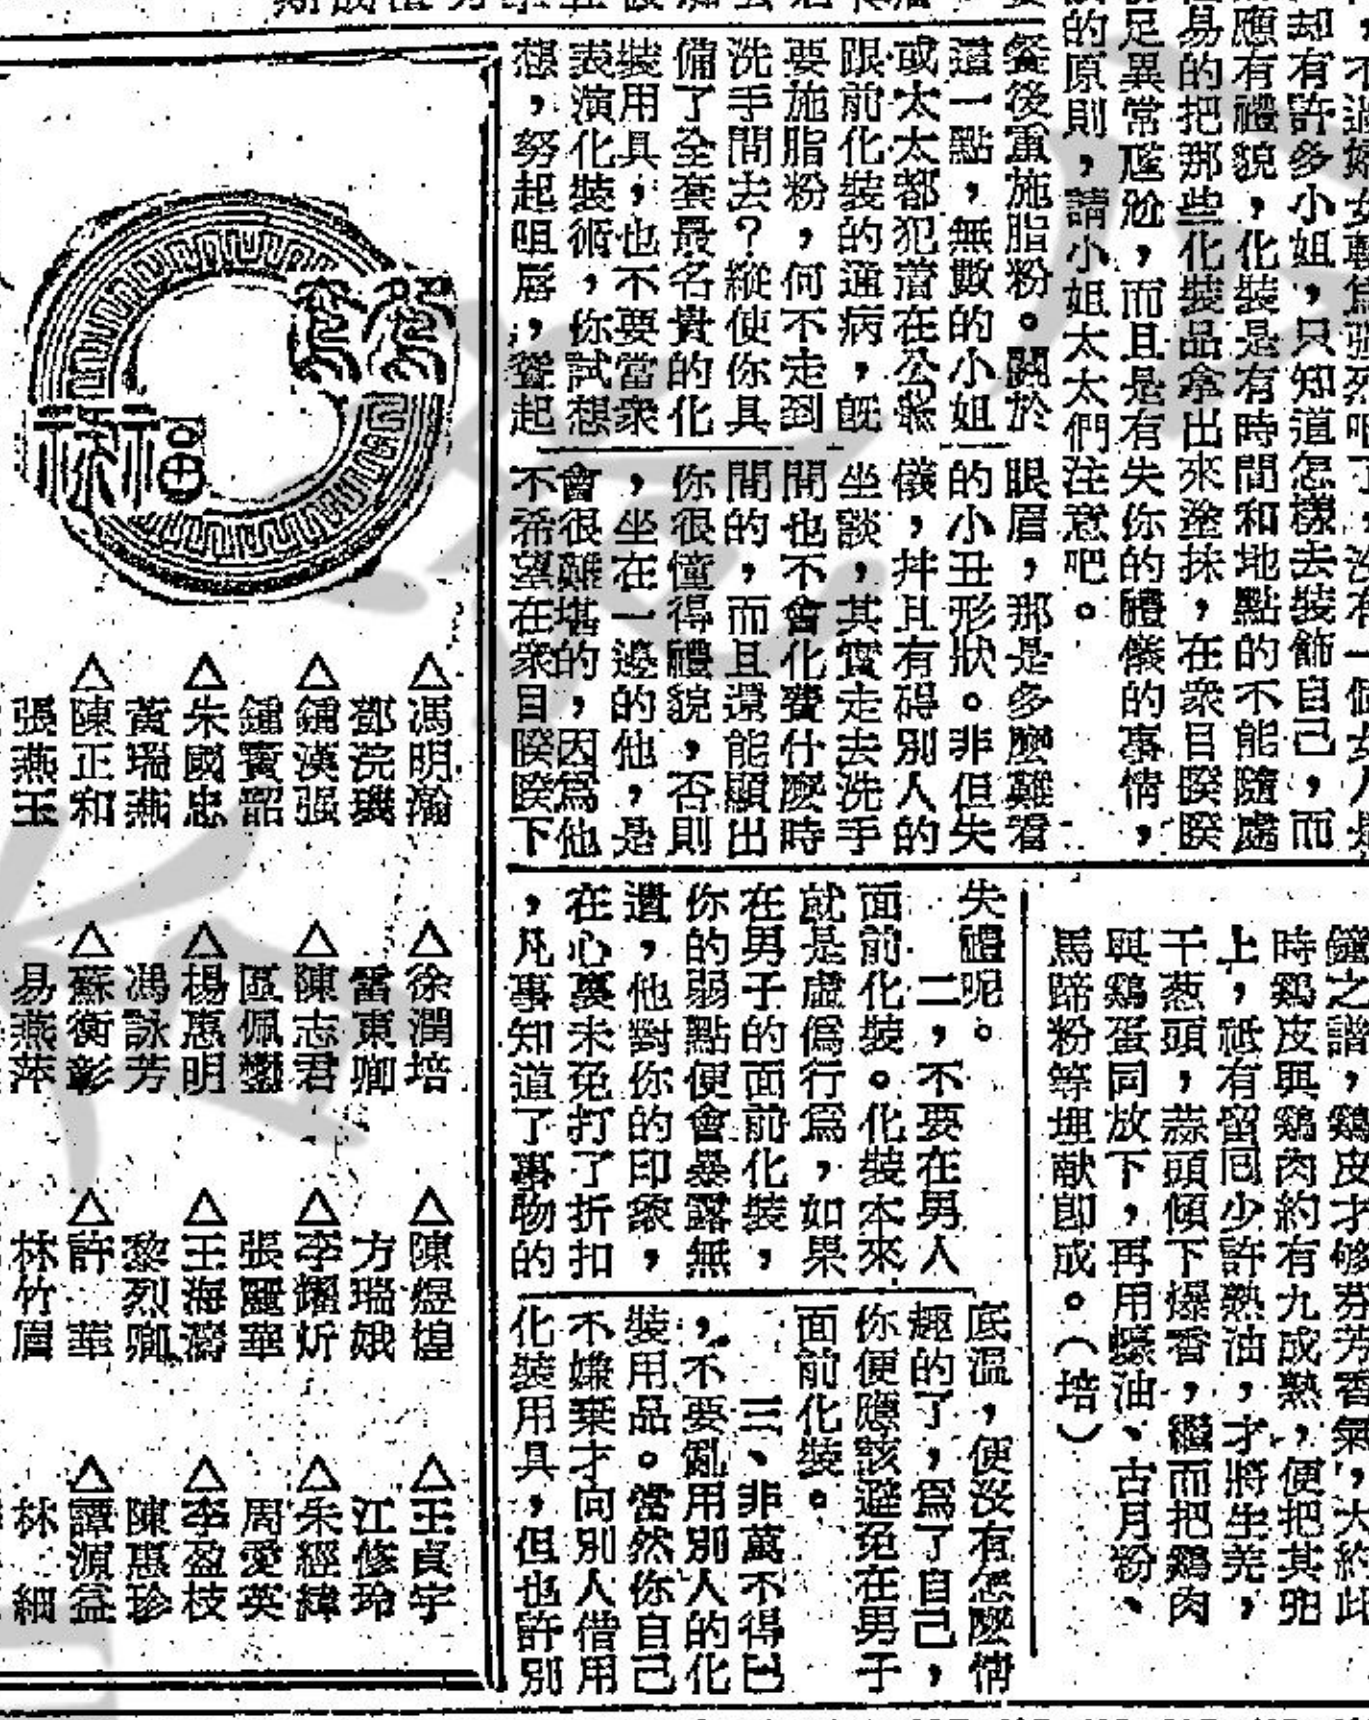 却有許多小姐，只知道怎樣去裝飾自己，而
應有禮貌，化裝是有時間和地點的不能隨處
易的把那些化裝品拿出來塗抹，在衆目睽睽
足異常尷尬，而且是有失你的體儀的事情，
的原則，請小姐太太們注意吧。
餐後重施脂粉。關於
這一點，無數的小姐
或太太都犯著在公衆
跟前化裝的通病，旣
要施脂粉，何不走到
洗手間去？縱使你具
備了全套最名貴的化
裝用具，也不要當衆
表演化裝術，你試想
想，努起咀唇，聳起
眼眉，那是多麼難看
的小丑形狀。非但失
儀，幷且有碍別人的
坐談，其實走去洗手
間也不會化費什麼時
間的，而且還能顯出
你很懂得禮貌，否則
，坐在一邊的他，是
會很難堪的，因爲他
不希望在衆目睽睽下
失禮呢。
二，不要在男人
面前化裝。化裝本來
就是虛僞行爲，如果
在男子的面前化裝，
你的弱點便會暴露無
遺，他對你的印象，
在心裏未免打了折扣
，凡事知道了事物的
底温，便沒有怎麼情
趣的了，爲了自己，
你便應該避免在男子
面前化裝。
三、非萬不得已
，不要亂用別人的化
裝用品。當然你自己
不嫌棄才向別人借用
化裝用具，但也許別
之譜，鷄皮才够芬芳香氣，大約此
時鷄皮與鷄肉約有九成熟，便把其兜
上，祇有留囘少許熟油，才將生羌，
干葱頭，蒜頭傾下爆香，繼而把鷄肉
與鷄蛋同放下，再用蠔油、古月粉、
馬蹄粉等埋献卽成。（培）
福
△馮明瀚
鄧浣璣
△鍾漢强
鍾寶韶
△朱國忠
黃瑞燕
△陳正和
張燕玉
△徐潤培
雷東卿
△陳志君
區佩鑾
△楊惠明
馮詠芳
△蘇衡彰
易燕萍
△陳煜煌
方瑞娥
△李耀炘
張麗華
△王海濤
黎烈卿
△許　華
林竹眉
△王貞宇
江修玲
△朱經緯
周愛英
△李盈枝
陳惠珍
△譚源益
林　細